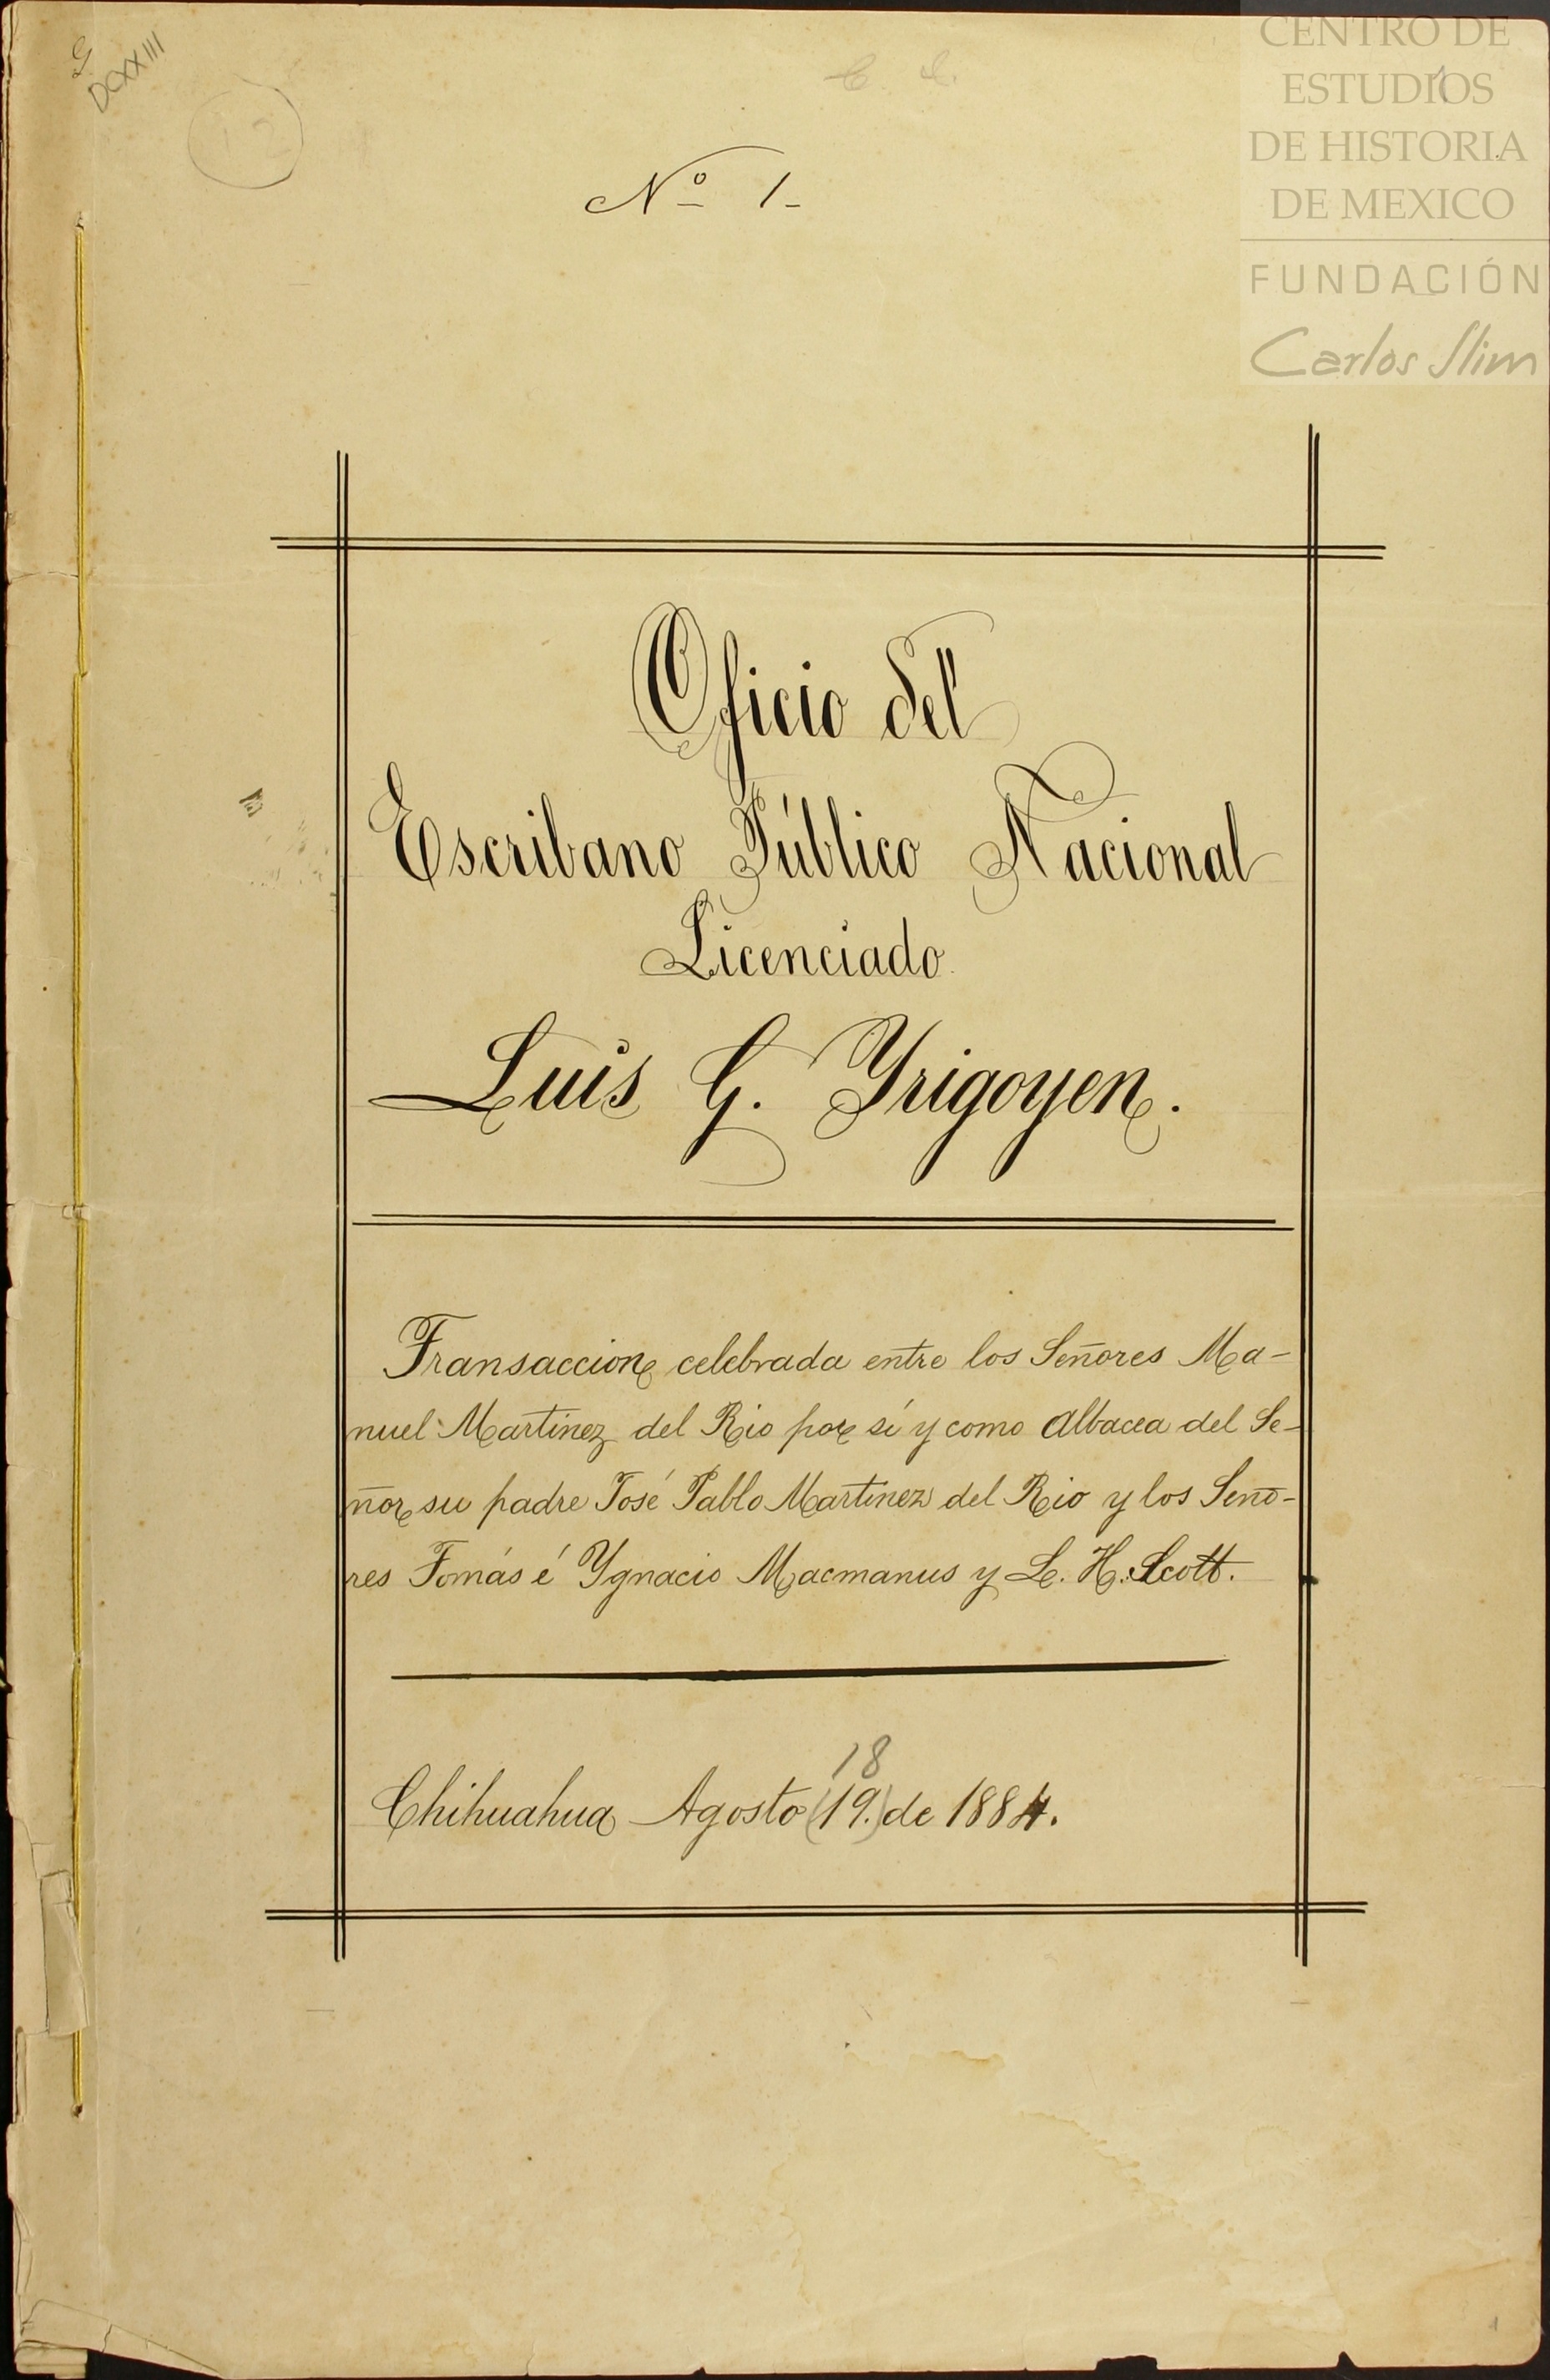 CENTRO DE
ESTUDIOS
DE HISTORIA
DE MEXICO
FUNDACIÓN
Carlos Slim
DCXXIII
12
Nº 1-
Oficio del
Escribano Público Nacional
Licenciado
Luis G. Yrigoyen.
Transaccion celebrada entre los Señores Ma-
nuel Martinez del Rio por sí y como Albacea del Se-
ñor su padre José Pablo Martinez del Rio y los Seño-
res Tomás é Ygnacio Macmanus y L. H. Scott.
18
Chihuahua Agosto (19.) de 1884.
1